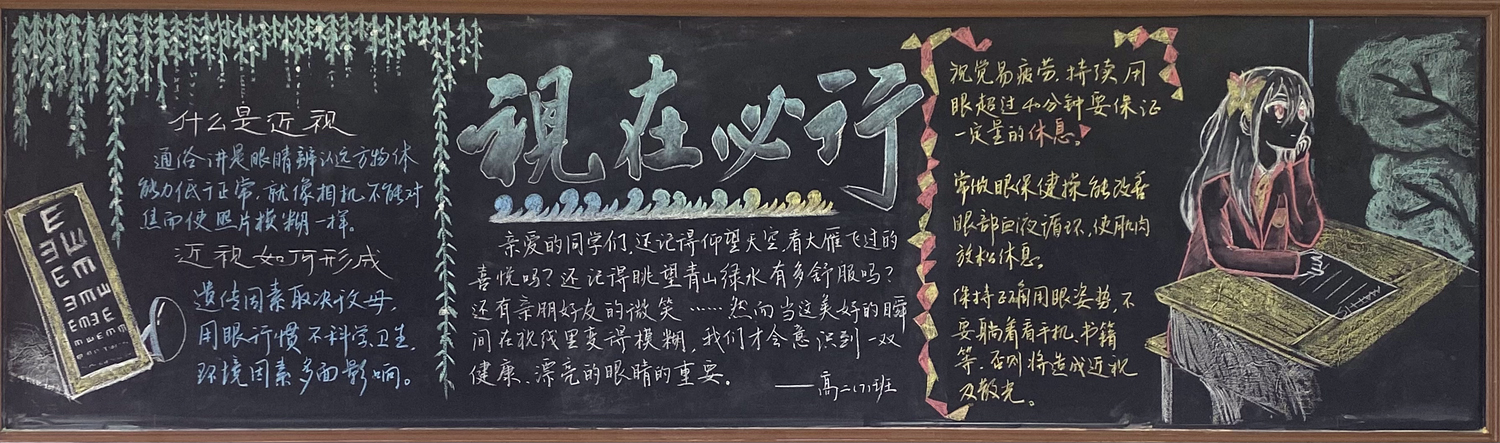 什么是近视
通俗讲是眼睛辨认远方物体
能力低于正常,就像相机不能对
焦而使照片模糊一样。
近视如何形成
遗传因素取决父母,
用眼行惯不科学卫生,
环境因素多面影响。
视在必行
亲爱的同学们,还记得仰望天空看大雁飞过的
喜悦吗?还记得眺望青山绿水有多舒服吗?
还有亲朋好友的微笑……然而当这美好的瞬
间在视线里变得模糊,我们才会意识到一双
健康、漂亮的眼睛的重要。
——高二(7)班
视觉易疲劳,持续用
眼超过40分钟要保证
一定量的休息
常做眼保健操能改善
眼部血液循环,使肌肉
放松休息。
保持正确用眼姿势,不
要躺着看手机、书籍
等,否则将造成近视
及散光。